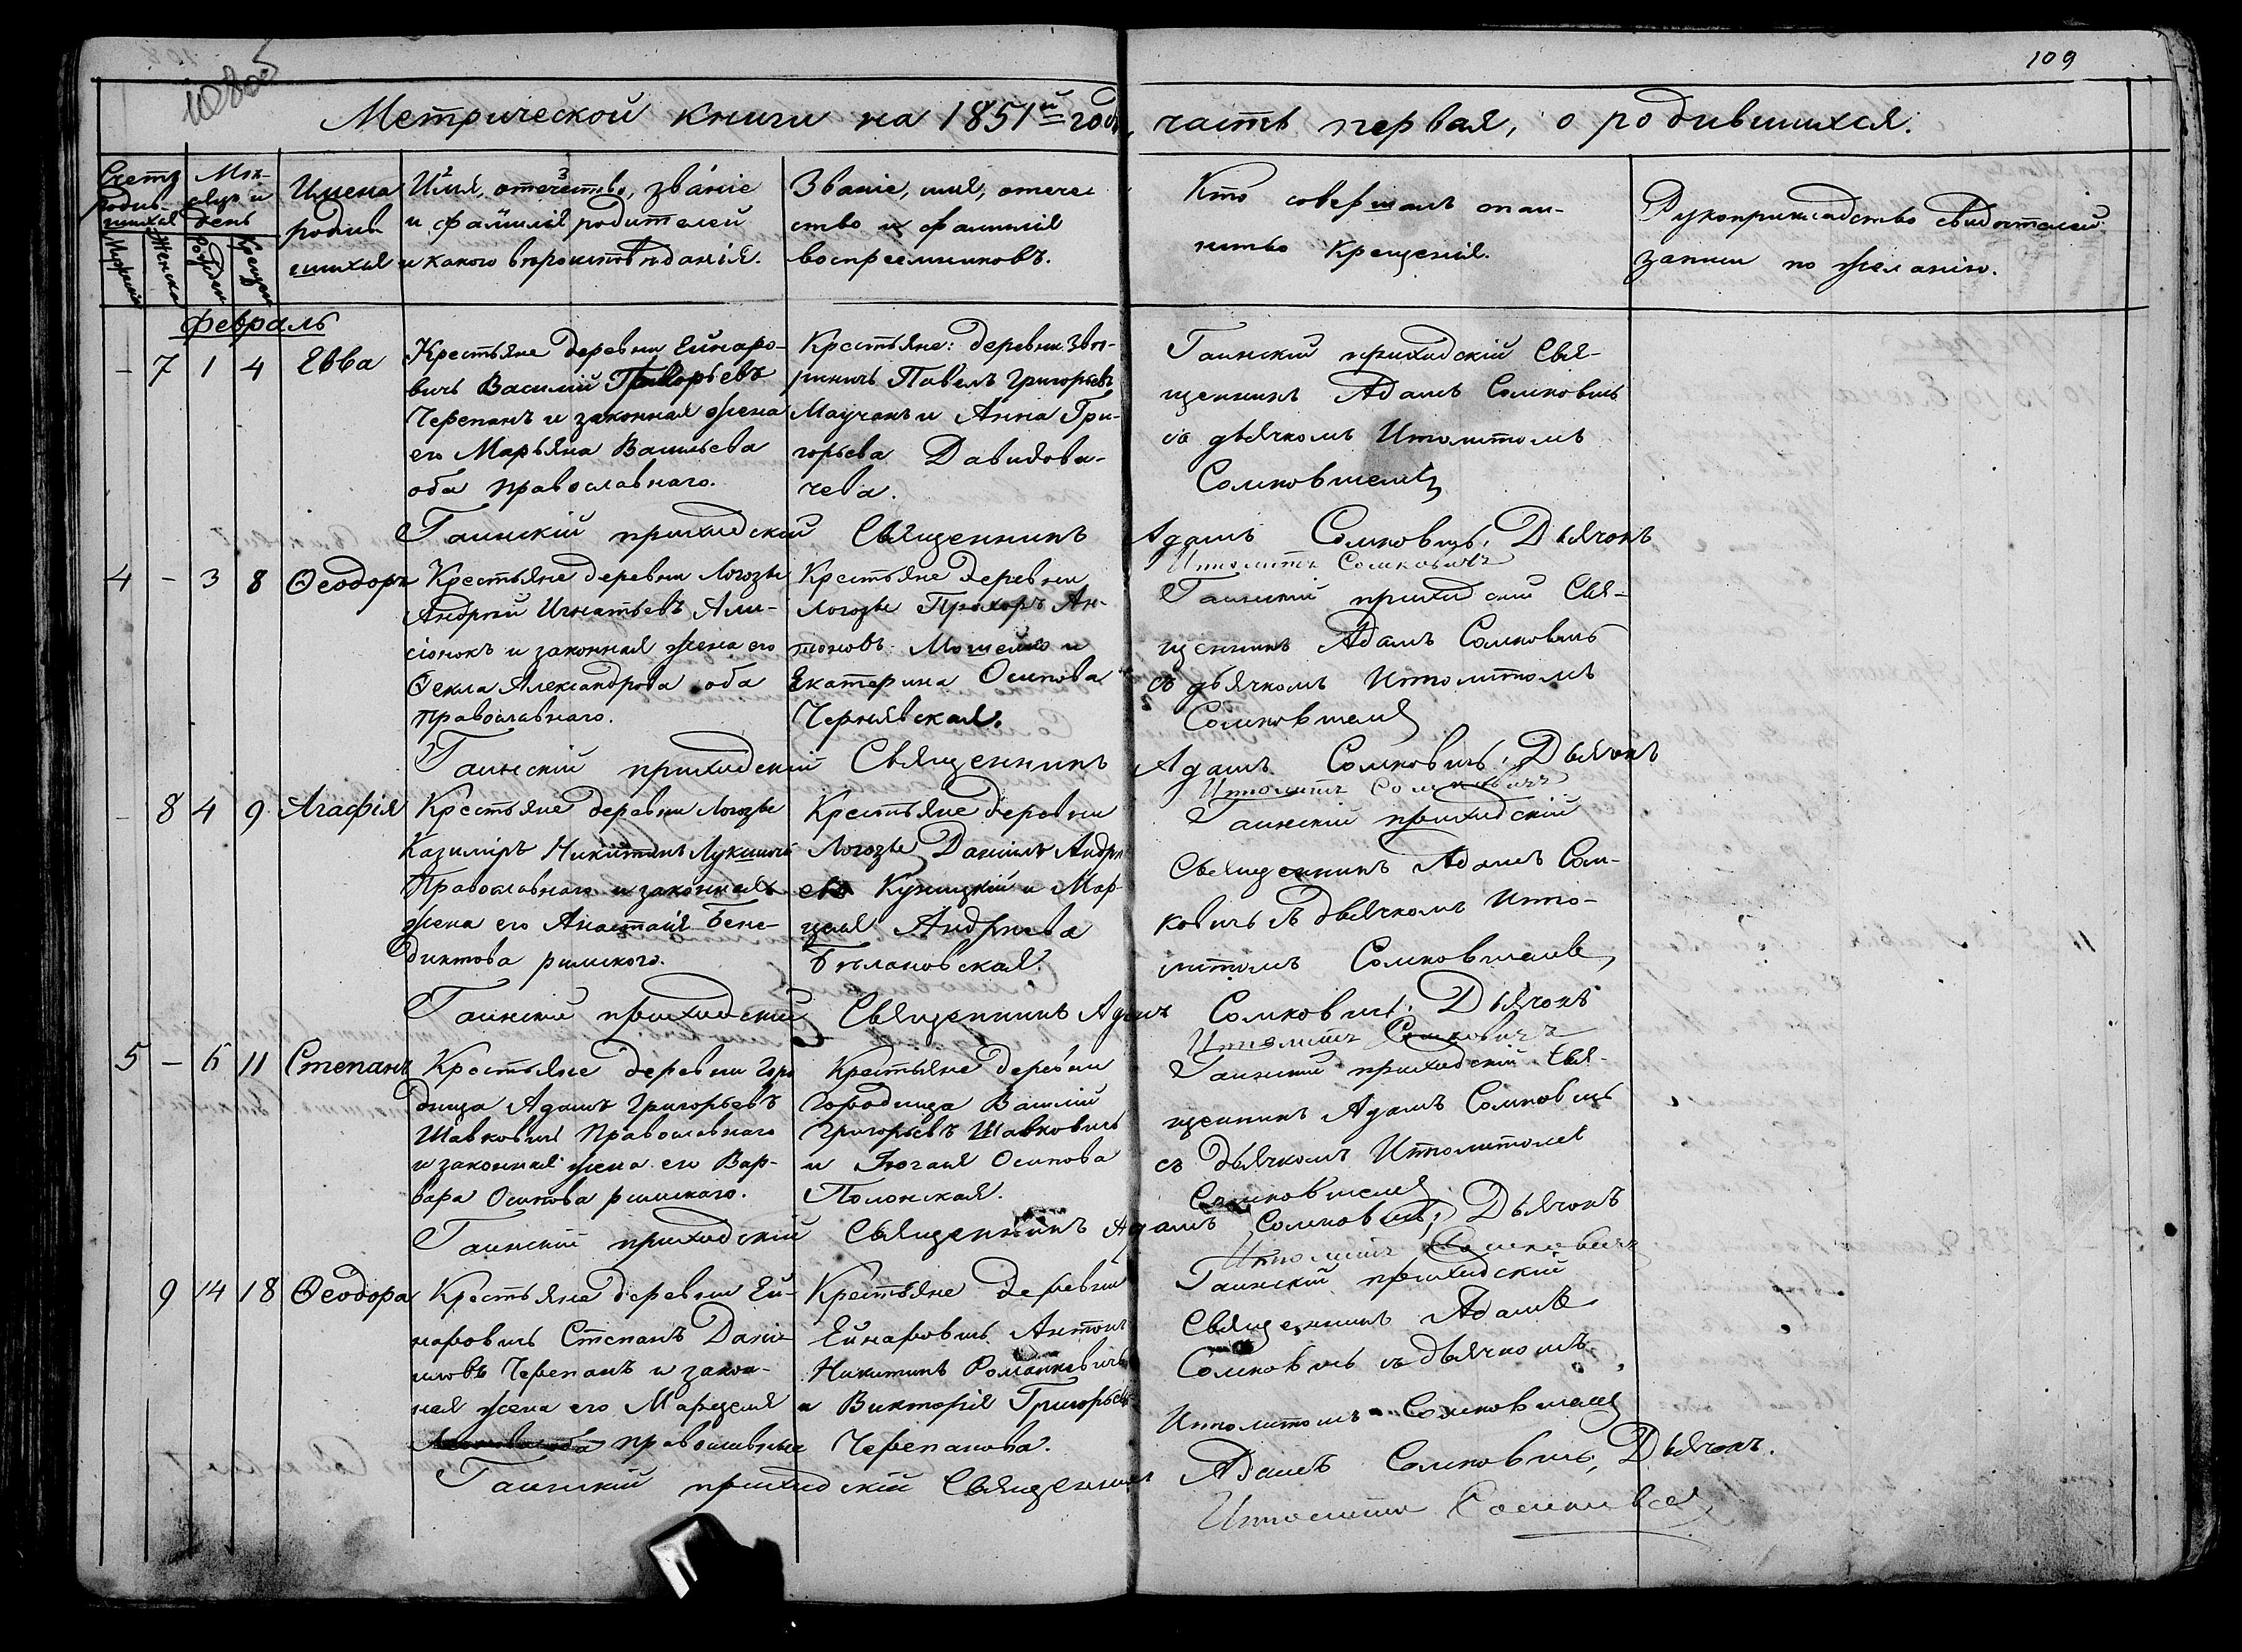 109
108об
Метрической книги на 1851й годъ, часть первая, о родившихся.
Счетъ родив-шихся
Мѣ-сяцъ и день
Имена родив-шихся
Имя, отечество, званіе и фамилія родителей и какого вѣроисповѣданія.
Званіе, имя, отече-ство и фамилія воспреемниковъ.
Кто совершалъ таи-нство крещенія.
Рукоприкладство свидѣтелей записи по желанію.
Мужеска
Женска
Рожден
Крещен
Февраль
– 7 1 4 Евва
Крестьяне деревни Ейнаро-
вичь Василій Григорьевъ
Черепанъ и законная жена
его Марьяна Васильева
оба православнаго.
Крестьяне: деревни Звѣ-
риничь Павелъ Григорьевъ
Маучанъ и Анна Гри-
горьева Давидови-
чева.
Гаинскій приходскій Свя-
щенникъ Адамъ Сомковичь
съ дьячкомъ Ипполитомъ
Сомковичемъ
Гаинскій приходскій Священникъ Адамъ Сомковичь, Дьячокъ
Ипполитъ Сомковичъ
4 – 3 8 Ѳеодоръ
Крестьяне деревни Логозы
Андрей Игнатьевъ Али-
сіонокъ и законная жена его
Ѳекла Александрова оба
православнаго.
Крестьяне деревни
Логозы Прохоръ Ан-
тоновъ Мошейко и
Екатерина Осипова
Чернявская.
Гаинскій приходскій Свя-
щенникъ Адамъ Сомковичь
съ дьячкомъ Ипполитомъ
Сомковичемъ
Гаинскій приходскій Священникъ Адамъ Сомковичь, Дьячокъ
Ипполитъ Сомковичъ
– 8 4 9 Агафія
Крестьяне деревни Логозы
Казиміръ Никитинъ
Православнаго и законная
жена его Анастасія Бене-
диктова римского.
Крестьяне деревни
Логозы Даніилъ Андре
евъ Куницкій и Мар-
целя Андреева
Бѣлановская.
Гаинскій приходскій
Священникъ Адамъ Сом-
ковичь съ дьячкомъ Иппо-
литомъ Сомковичемъ
Гаинскій приходскій Священникъ Адамъ Сомковичь, Дьячокъ
Ипполитъ Сомковичъ
5 – 6 11 Степанъ
Крестьяне деревни Горо
дища Адамъ Григорьевъ
Шавковичь Православнаго
и законная жена его Вар-
вара Осипова римскаго.
Крестьяне деревни
Городища Василій
Григорьевъ Шавковичь
и Осипова
Полонская.
Гаинскій приходскій Свя-
щенникъ Адамъ Сомковичь
съ дьячкомъ Ипполитомъ
Сомковичемъ
Гаинскій приходскій Священникъ Адамъ Сомковичь, Дьячокъ
Ипполитъ Сомковичъ
9 14 18 Ѳеодора
Крестьяне деревни Ей-
наровичь Степанъ Дані-
иловъ Черепанъ и закон-
ная жена его Марцеля
православные
Крестьяне деревни
Ейнаровичь Антонъ
Никитинъ Романкевичъ
и Викторія Григорьева
Черепанова.
Гаинскій приходскій
Священникъ Адамъ
Сомковичь съ дьячкомъ
Ипполитомъ Сомковичемъ
Гаинскій приходскій Священникъ Адамъ Сомковичь, Дьячокъ.
Ипполитъ Сомковичъ